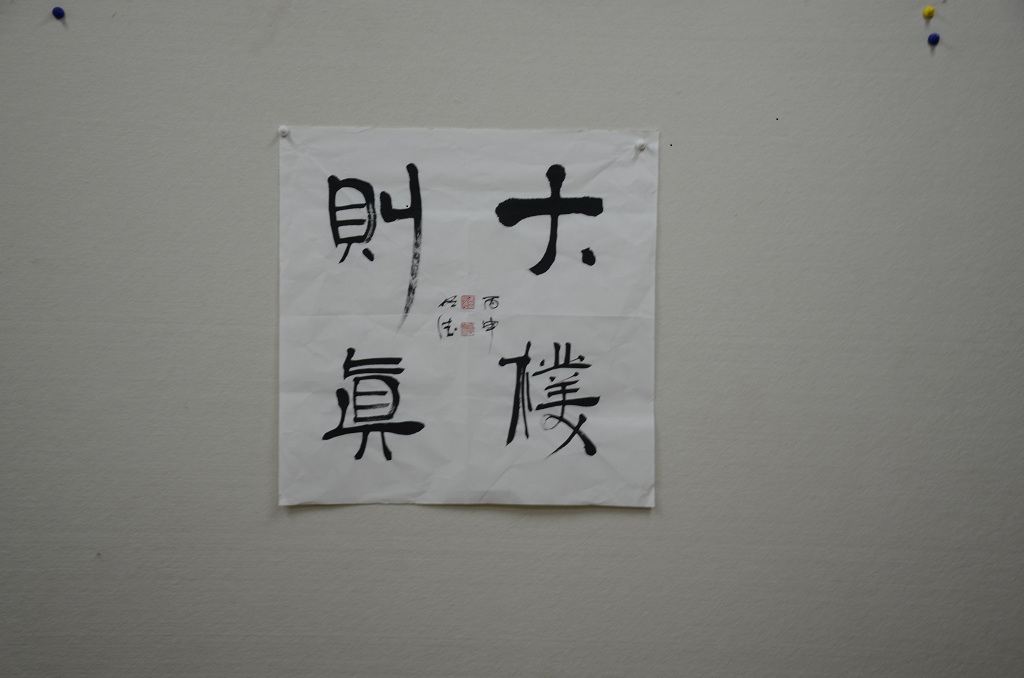 大樸
則眞
丙申